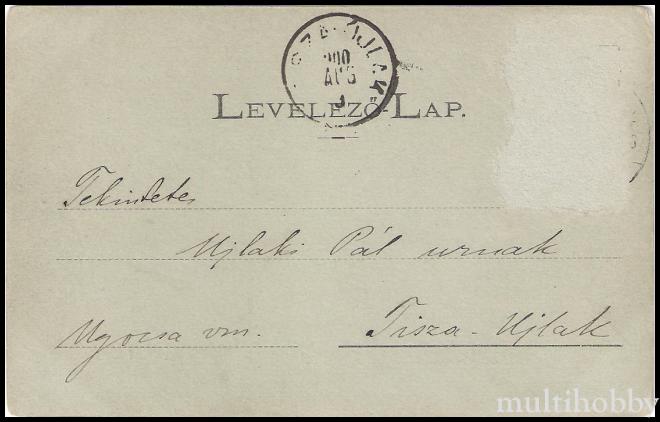 LEVELEZŐ-LAP.
Tekintetes
Ujlaki Pál urnak
Ugocsa vm.
Tisza-Ujlak
900
AUG
multihobby